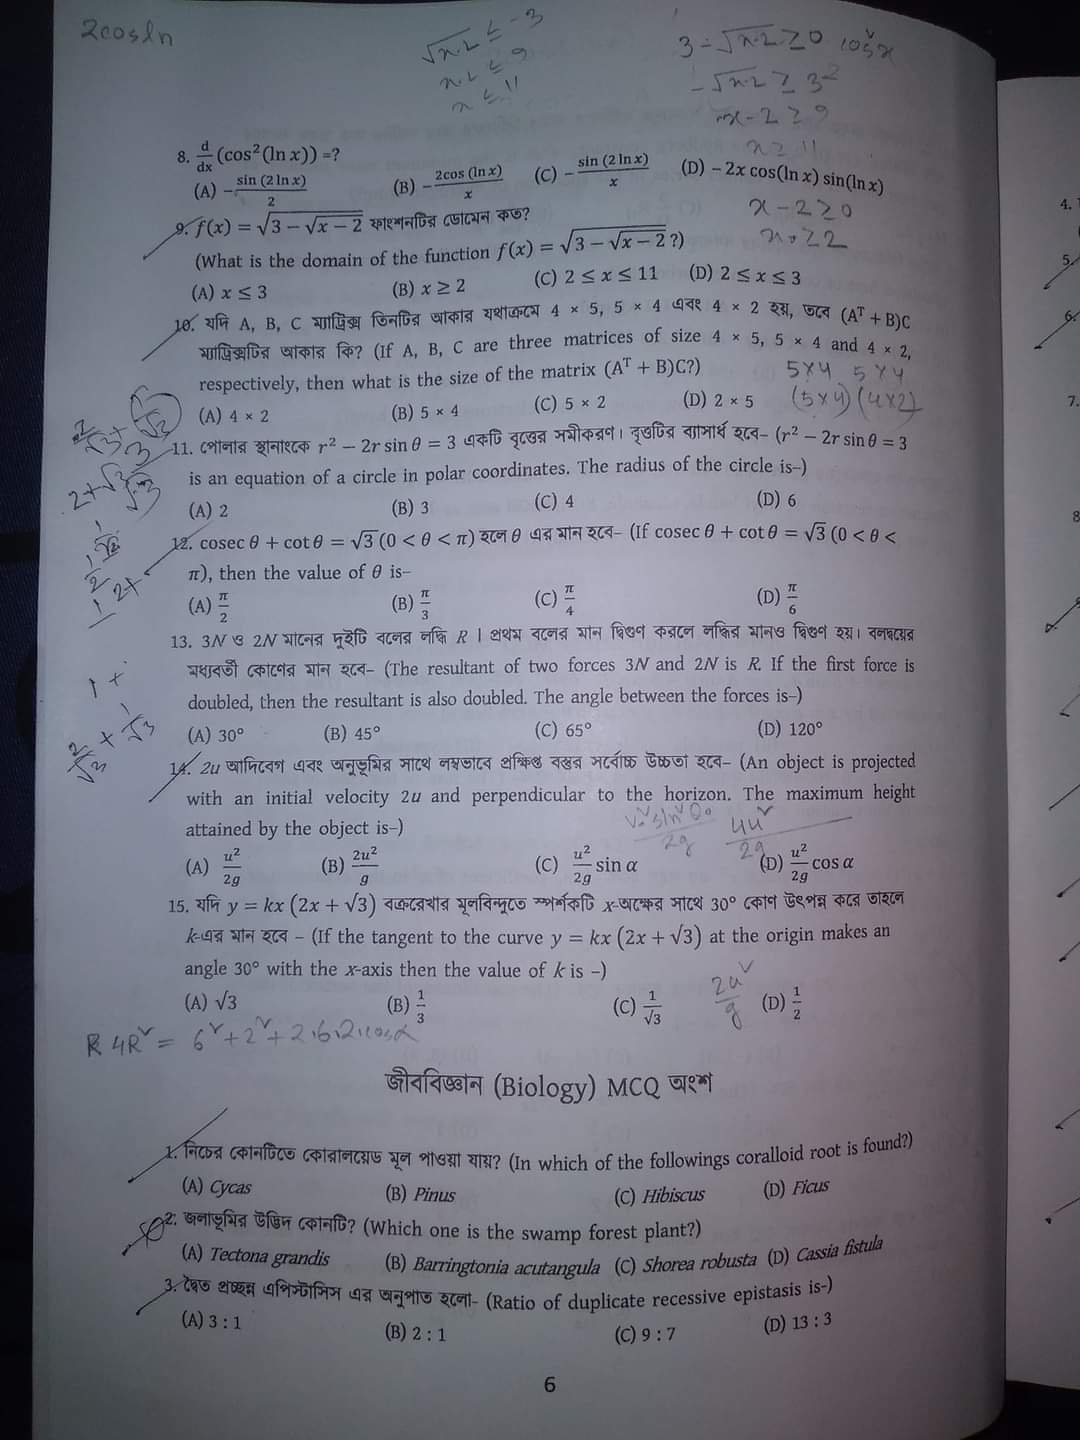 2cosln
√x-2 ≤ -3
x-2 ≤ 9
x ≤ 11
3-√x-2 ≥ 0
-√x-2 ≥ 3²
x-2 ≥ 9
x ≥ 11
8. d/dx (cos²(ln x)) =?
(A) −sin (2 ln x)/2 (B) −2cos (ln x)/x (C) −sin (2 ln x)/x (D) − 2x cos(ln x) sin(ln x)
x-2 ≥ 0
9. f(x) = √(3 − √(x − 2)) ফাংশনটির ডোমেন কত?
(What is the domain of the function f(x) = √(3 − √(x − 2)) ?)
(A) x ≤ 3 (B) x ≥ 2 (C) 2 ≤ x ≤ 11 (D) 2 ≤ x ≤ 3
10. যদি A, B, C ম্যাট্রিক্স তিনটির আকার যথাক্রমে 4 × 5, 5 × 4 এবং 4 × 2 হয়, তবে (Aᵀ + B)C
ম্যাট্রিক্সটির আকার কি? (If A, B, C are three matrices of size 4 × 5, 5 × 4 and 4 × 2,
respectively, then what is the size of the matrix (Aᵀ + B)C?)
5×4 5×4
(A) 4 × 2 (B) 5 × 4 (C) 5 × 2 (D) 2 × 5
(5×4) (4×2)
11. পোলার স্থানাংকে r² − 2r sin θ = 3 একটি বৃত্তের সমীকরণ। বৃত্তটির ব্যাসার্ধ হবে– (r² − 2r sin θ = 3
is an equation of a circle in polar coordinates. The radius of the circle is–)
(A) 2 (B) 3 (C) 4 (D) 6
12. cosec θ + cot θ = √3 (0 < θ < π) হলে θ এর মান হবে– (If cosec θ + cot θ = √3 (0 < θ <
π), then the value of θ is–
(A) π/2 (B) π/3 (C) π/4 (D) π/6
13. 3N ও 2N মানের দুইটি বলের লব্ধি R । প্রথম বলের মান দ্বিগুণ করলে লব্ধির মানও দ্বিগুণ হয়। বলদ্বয়ের
মধ্যবর্তী কোণের মান হবে– (The resultant of two forces 3N and 2N is R. If the first force is
doubled, then the resultant is also doubled. The angle between the forces is–)
(A) 30° (B) 45° (C) 65° (D) 120°
14. 2u আদিবেগ এবং অনুভূমির সাথে লম্বভাবে প্রক্ষিপ্ত বস্তুর সর্বোচ্চ উচ্চতা হবে– (An object is projected
with an initial velocity 2u and perpendicular to the horizon. The maximum height
attained by the object is–)
4u²/2g
(A) u²/2g (B) 2u²/g (C) u²/2g sin α (D) u²/2g cos α
15. যদি y = kx (2x + √3) বক্ররেখার মূলবিন্দুতে স্পর্শকটি x-অক্ষের সাথে 30° কোণ উৎপন্ন করে তাহলে
k-এর মান হবে – (If the tangent to the curve y = kx (2x + √3) at the origin makes an
angle 30° with the x-axis then the value of k is –)
2u²/g
(A) √3 (B) 1/3 (C) 1/√3 (D) 1/2
4R² = 6² + 2² + 2.6.2.cosα
জীববিজ্ঞান (Biology) MCQ অংশ
1. নিচের কোনটিতে কোরালয়েড মূল পাওয়া যায়? (In which of the followings coralloid root is found?)
(A) Cycas (B) Pinus (C) Hibiscus (D) Ficus
2. জলাভূমির উদ্ভিদ কোনটি? (Which one is the swamp forest plant?)
(A) Tectona grandis (B) Barringtonia acutangula (C) Shorea robusta (D) Cassia fistula
3. দ্বৈত প্রচ্ছন্ন এপিস্টাসিস এর অনুপাত হলো- (Ratio of duplicate recessive epistasis is-)
(A) 3 : 1 (B) 2 : 1 (C) 9 : 7 (D) 13 : 3
6
4.
5.
6.
7.
8